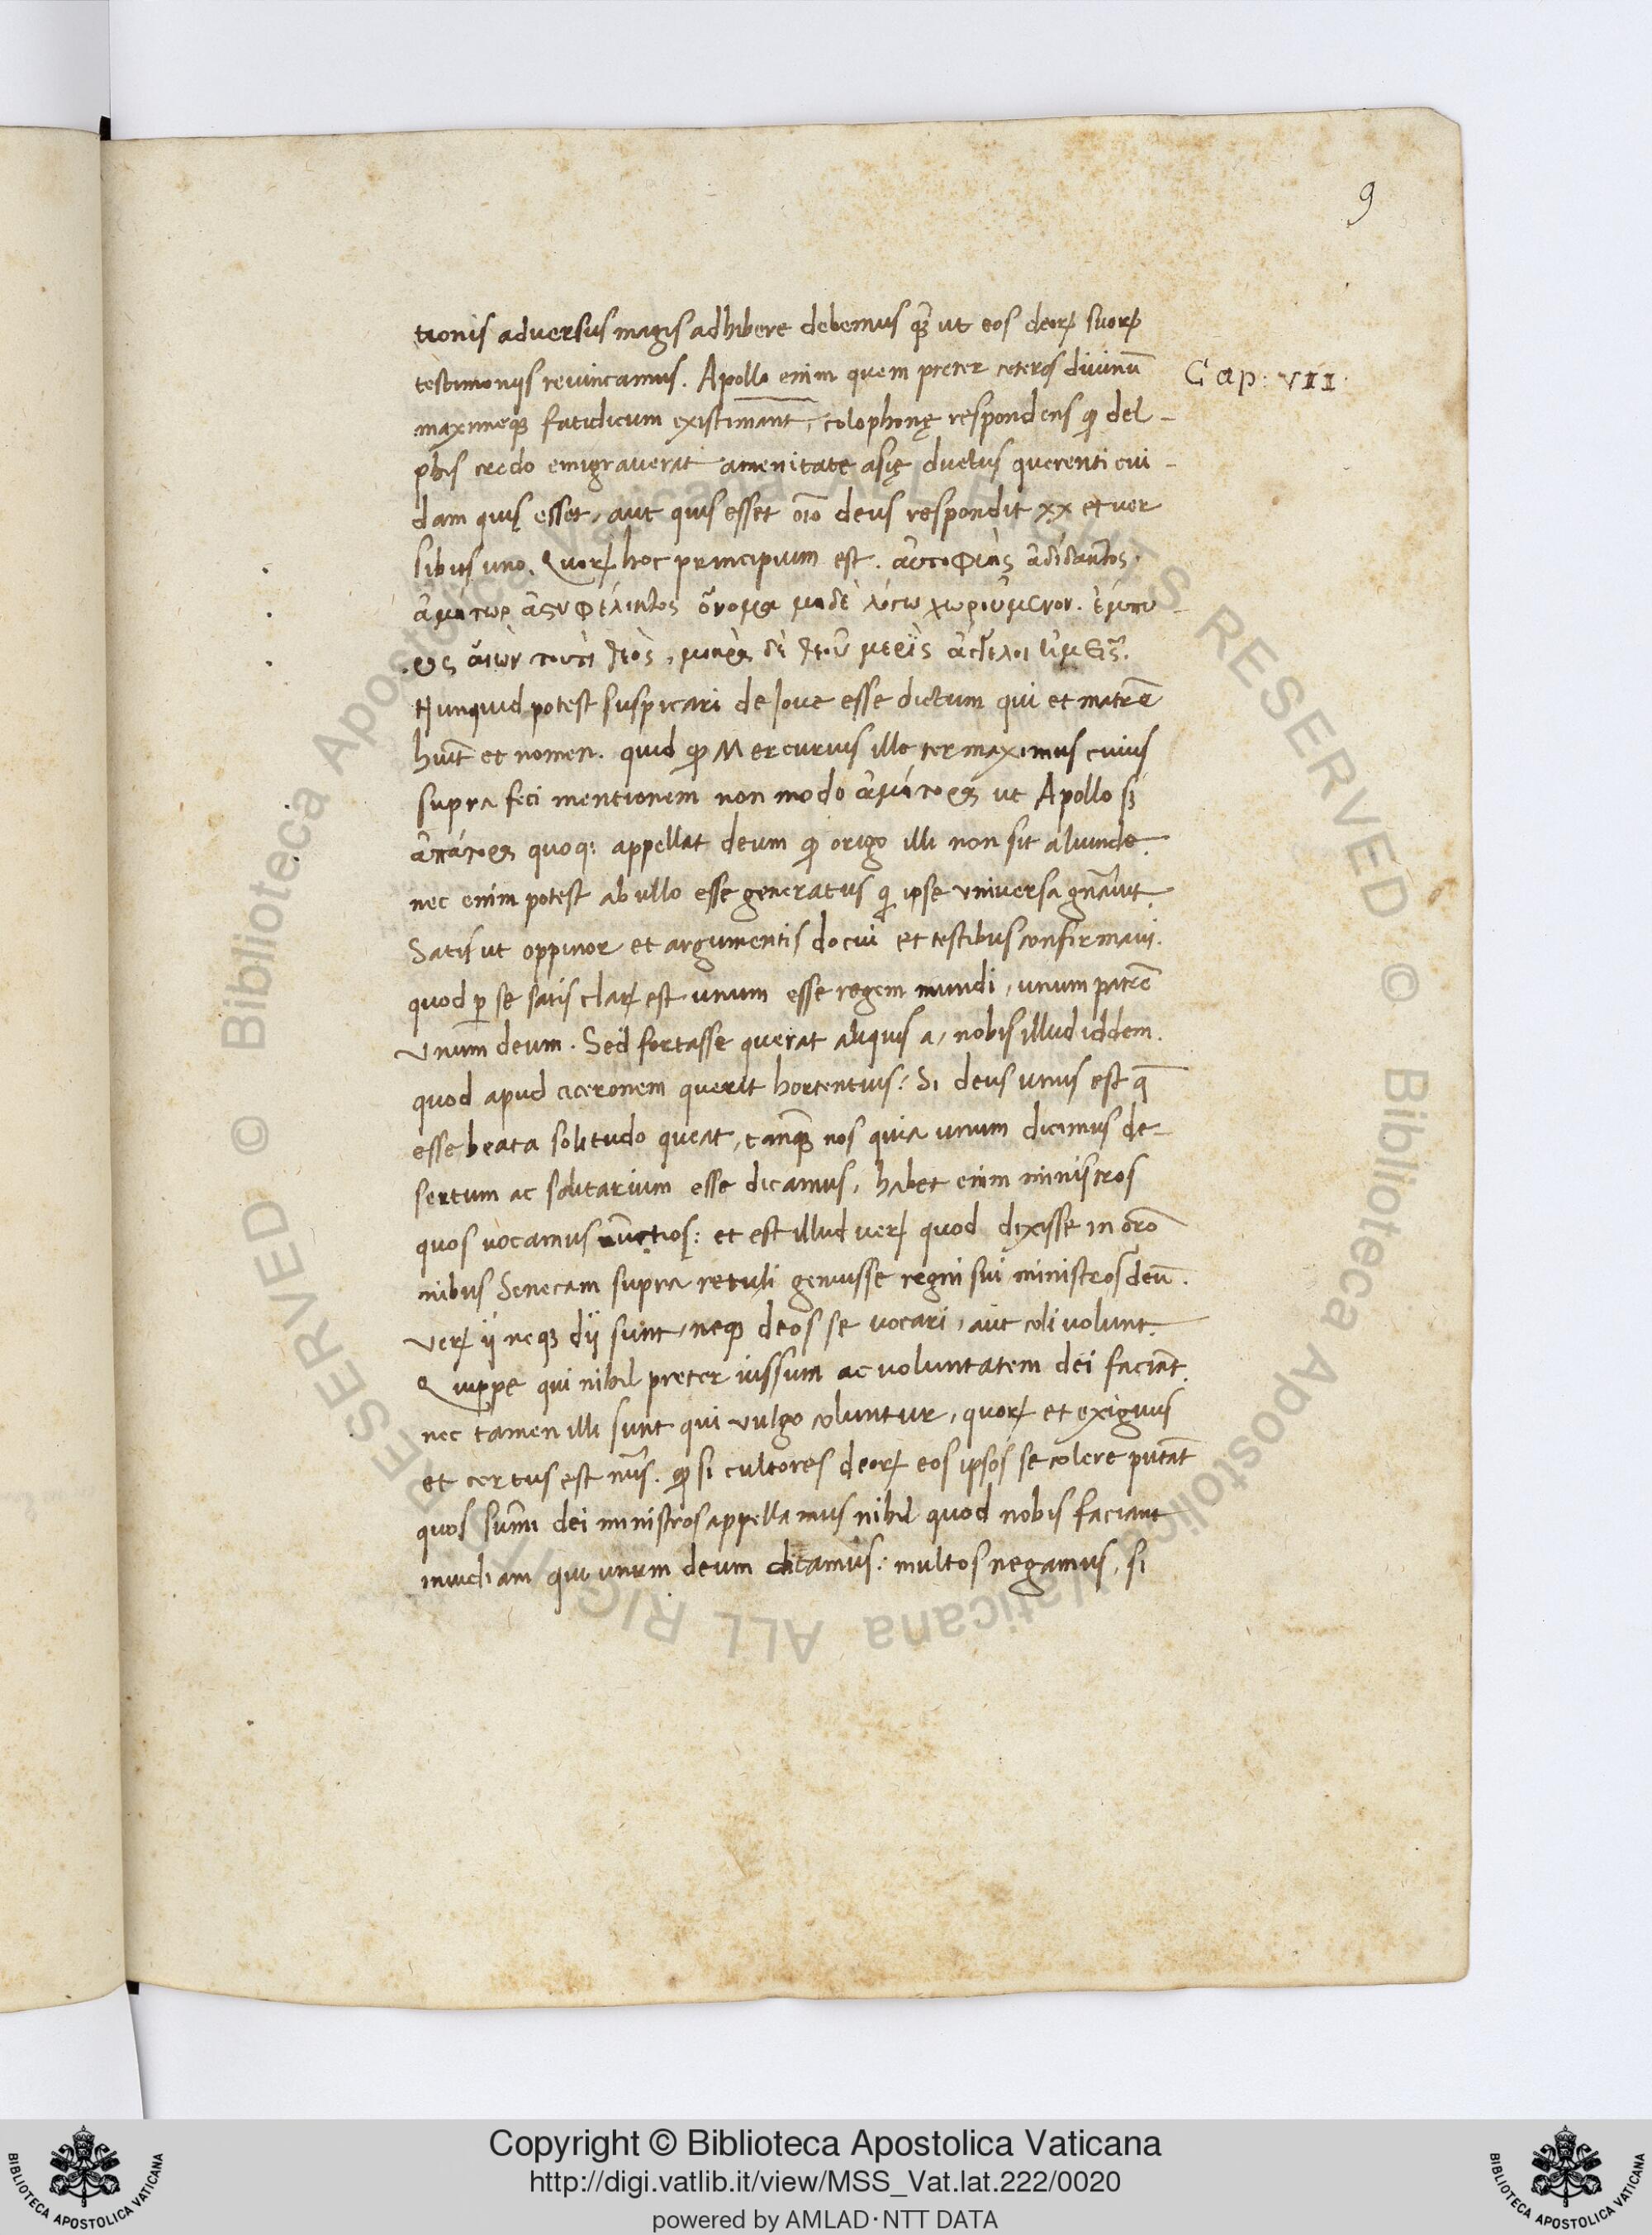 9
tionis adversus magis adhibere debemus qʒ̃ ut eos deoꝝ suoꝝ
testimonijs revincamus. Apollo enim quem preter ceteros divinũ
Cap: VII
maximeqʒ fatidicum existimant, colophonę respondens qͥ del-
phis credo emigraverat amenitate asię ductus querenti cui-
dam quis esset, aut quis esset oĩo deus respondit xx et ver
sibus uno. Quoꝝ hoc principium est. ἀυτοφυὴς ἀδίδακτος.
ἀμήτωρ ἀςυφέλικτος ὄνομα μηδὲ λόγω χωρούμενον. ἐν πυ
ρὶ ναίων τουτὶ θεὸς, μικρὰ δὲ θεοῦ μερὶς ἄγγελοι ὑμεῖς.
Nunquid potest suspicari de Iove esse dictum qui et matrẽ
huit̃ et nomen. quid qͩ Mercurius ille ter maximus cuius
supra feci mentionem non modo ἀμήτορα ut Apollo sʒ
ἀπάτορα quoqʒ appellat deum qͩ origo illi non sit aliunde.
nec enim potest ab ullo esse generatus qͥ ipse universa gñavit.
Satis ut oppinor et argumentis docui et testibus confirmavi.
quod ꝑ se satis claꝝ est unum esse regem mundi, unum patrẽ
unum deum. Sed fortasse querat aliquis a, nobis illud iddem.
quod apud ciceronem querit hortensius: Si deus unus est q̃
esse beata solitudo queat, tanqʒ̃ nos quia unum dicimus de-
sertum ac solitarium esse dicamus, habet enim ministros
quos vocamus nũctios: et est illud veꝝ quod dixisse in oro
nibus Senecam supra retuli genuisse regni sui ministros deũ.
veꝝ ij neqʒ dij sunt, neqʒ deos se vocari, aut coli volunt.
Quippe qui nihil preter iussum ac voluntatem dei faciãt.
nec tamen illi sunt qui vulgo coluntur, quoꝝ et exiguus
et certus est nũs. qͩ si cultores deoꝝ eos ipsos se colere putãt
quos sum̃i dei ministros appellamus nihil quod nobis faciant
invidiam qui unum deum dicamus: multos negamus, si
Copyright © Biblioteca Apostolica Vaticana
http://digi.vatlib.it/view/MSS_Vat.lat.222/0020
powered by AMLAD·NTT DATA
BIBLIOTECA APOSTOLICA VATICANA
BIBLIOTECA APOSTOLICA VATICANA
© Biblioteca Apostolica Vaticana ALL RIGHTS RESERVED © Biblioteca Apostolica Vaticana ALL RIGHTS RESERVED